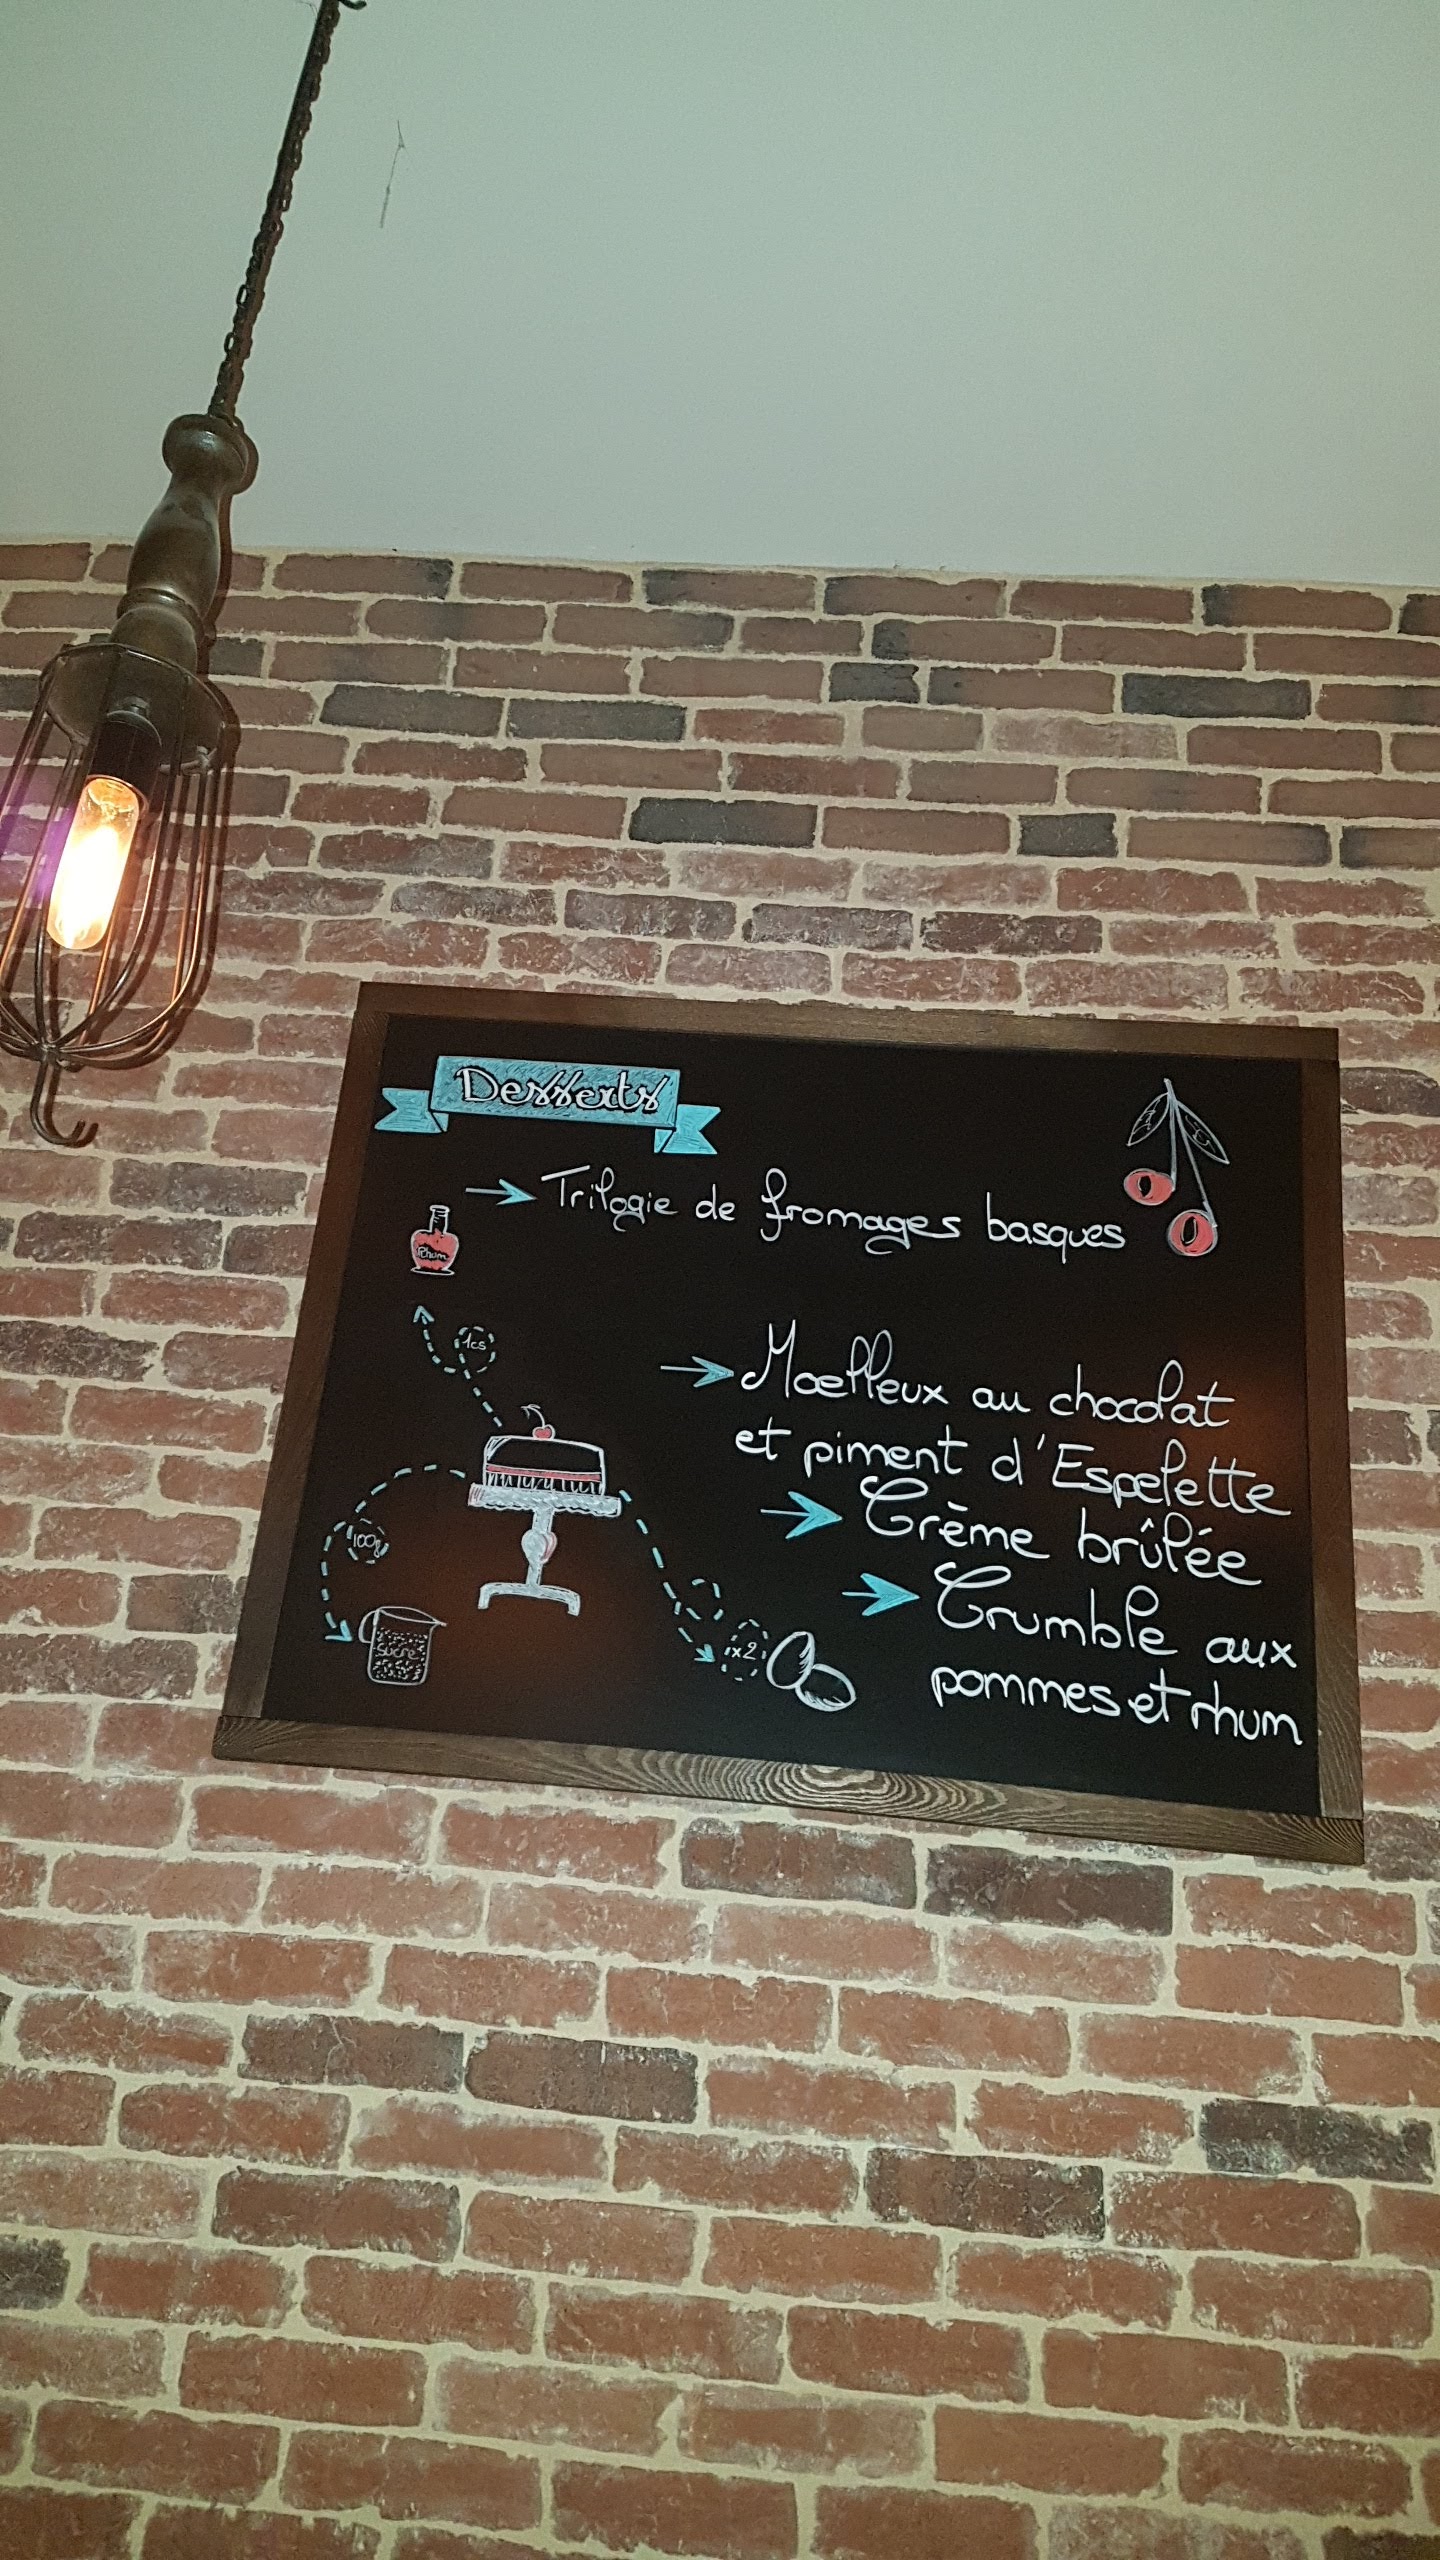 Desserts
Trilogie de fromages basques
Rhum
1cs
Moelleux au chocolat
et piment d'Espelette
Crème brûlée
100g
Crumble aux
sucre
x2
pommes et rhum